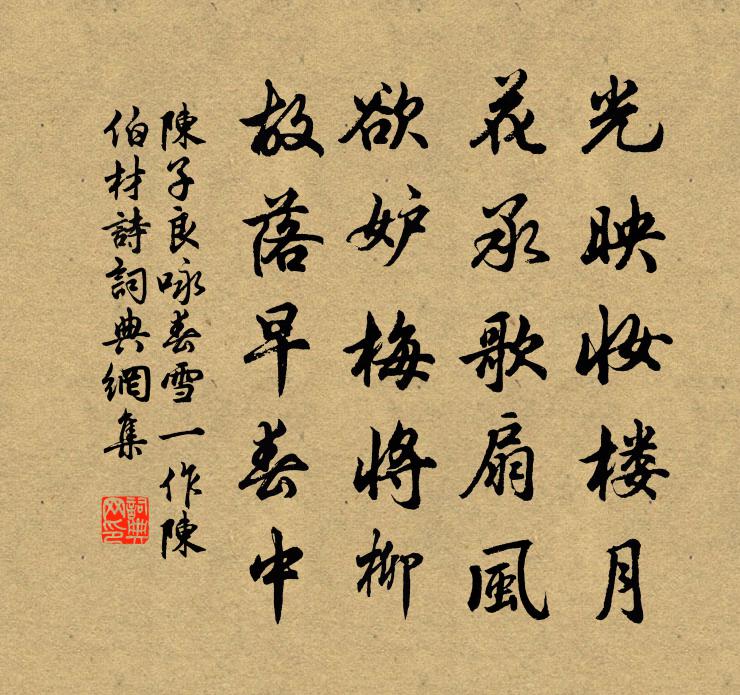 光映妆楼月
花承歌扇風
欲妒梅將柳
故落早春中
陳子良咏春雪一作陳
伯材詩詞典網集
詞典网印